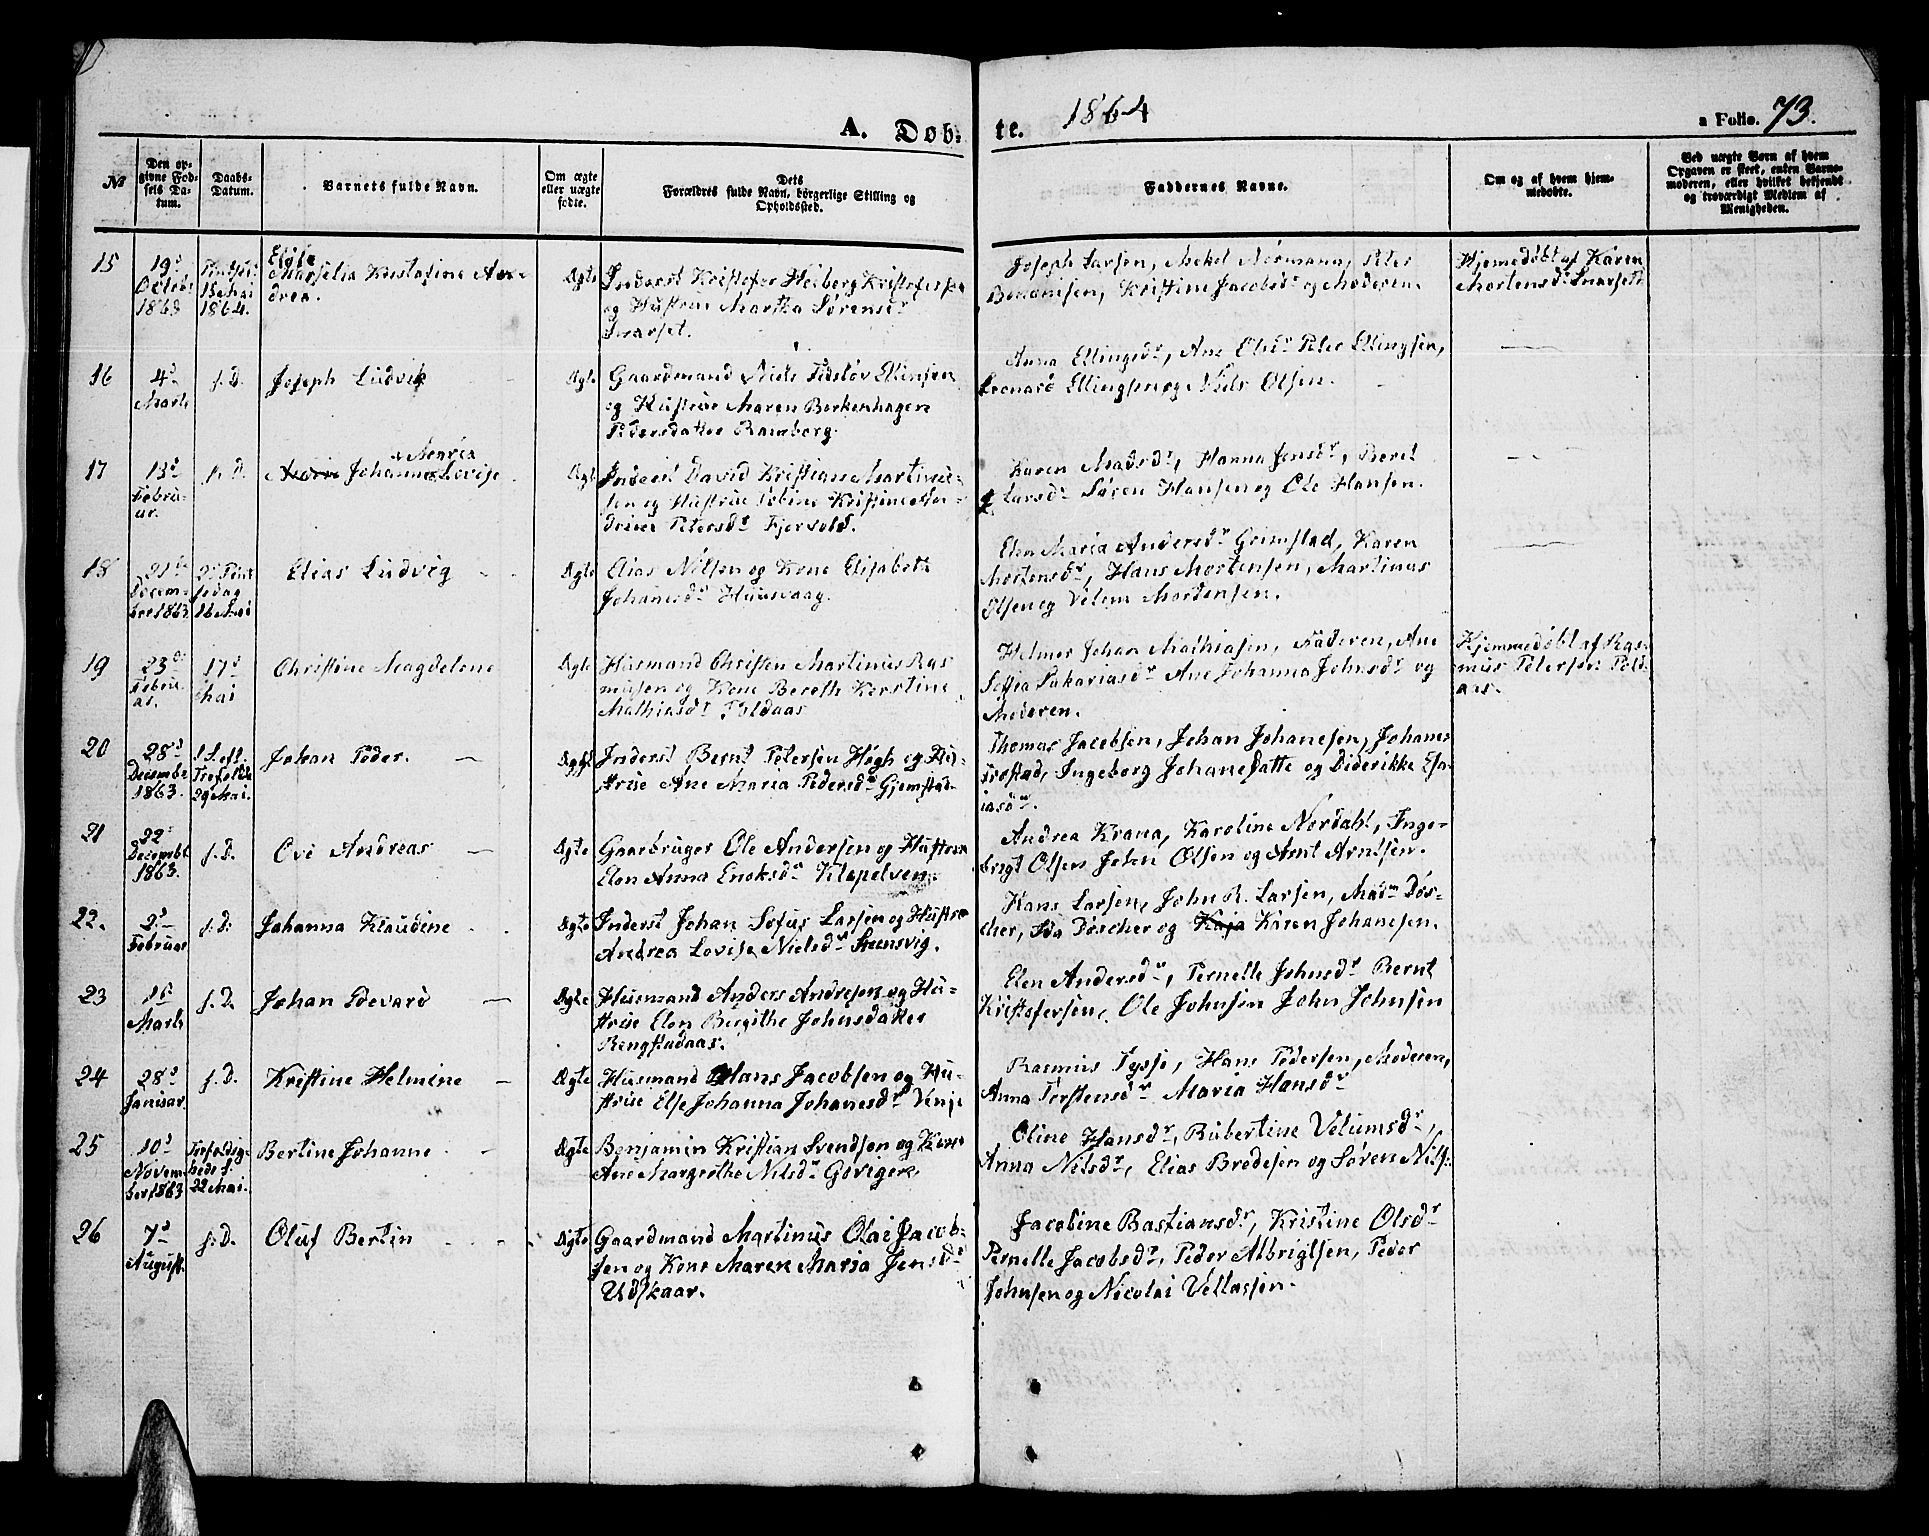 A. Døb-
te.
1864
a Folio. 73.
No
Den op-
givne Fød-
sels Da-
tum.
Daabs-
Datum.
Barnets fulde Navn.
Om ægte
eller uægte
fødte.
Dets
Forældres fulde Navn, borgerlige Stilling og
Opholdssted.
Faddernes Navne.
Om og af hvem hjem-
medøbte.
Ved uægte Børn af hvem
Opgaven er skeet, enten Barne-
moderen, eller hvilket bekjendt
og troværdigt Medlem af
Menigheden.
15
19d
Octob.
1863
15 Mai
1864.
Marselia Kristofine An-
drea.
Ægte
Inderst Kristofer Heiberg Kristofersen
og Hustrue Martha Sørensdr
Snarset.
Joseph Larsen, Mekel Normann, Peter
Benonisen, Kristine Jacobsdr og Moderen.
Hjemmedøbt af Karen
Mortensdr Snarseth
16
4d
Marts
s. D.
Joseph Ludvik
Ægte
Gaardmand Niels Tidsløv Ellinsen
og Hustrue Maren Berkenhagen
Pedersdatter Ramberg.
Anna Ellingsdr, Ane Elisdr Peter Ellingsen,
Leonard Ellingsen og Niels Olsen.
17
13d
Febru-
ar.
s. D.
Johanna Lovise
Ægte
Inderst David Kristian Martinus-
sen og Hustrue Tobine Kristine Hen-
drine Petersdr Fjervold.
Karen Madsdr, Hanna Jensdr, Beret
Larsdr Søren Hansen og Ole Hansen.
18
21de
Decem-
ber 1863
2d Pint
sedag
16 Mai
Elias Ludvig
Ægte
Elias Nilsen og Kone Elisabeth
Johanesdr Huusvaag.
Elen Maria Andersdr Grimstad, Karen
Mortensdr, Hans Mortensen, Martinus
Olsen og Velem Mortensen.
19
23de
Febru-
ar.
17d
Mai
Christine Magdelene
Ægte
Husmand Christen Martinus Ras
musen og Kone Bereth Kerstine
Mathiasdr Foldaas
Helmer Johan Mathiasen, Faderen, Ane
Soffia Sakariasdr Ane Johanna Johnsdr og
Moderen.
Hjemmedøbt af Ras-
mus Petersen Fold-
aas.
20
28d
Decembr
1863.
1 S. eft.
Trefoldh
29 Mai.
Johan Peder.
Ægte
Inderst Bernt Petersen Høgh og Hu-
strue Ane Maria Pedersdr Gjemstad
Thomas Jacobsen, Johan Johanesen, Johanes
Frostad, Ingeborg Johane Jatte og Diderikke Esa-
iasdr.
21
22d
Decembr
1863.
s. D.
Ove Andreas
Ægte
Gaarbruger Ole Andersen og Hustrue
Elen Anna Enoksdr Klepelven.
Andrea Krana, Karoline Nordahl, Inge-
brigt Olsen John Olsen og Arnt Arntsen.
22.
2d
Februar
s. D.
Johanna Klaudine
Ægte
Inderst Johan Sofus Larsen og Hustrue
Andrea Lovise Nielsdr Stensvig.
Hans Larsen, John R. Larsen, Madm Dos-
cher, Ida Doscher og Kaja Karen Johanesen.
23
15
Marts
s. D.
Johan Edevard
Ægte
Husmand Anders Andresen og Hu-
strue Elen Birgithe Johnsdatter
Rengstadaas.
Elen Andersdr, Pernelle Johnsdr Bernt
Kristofersen, Ole Johnsen John Johnsen
24
28d
Januar.
s. D.
Kristine Helmine
Ægte
Husmand Hans Jacobsen og Hu-
strue Else Johanna Johanesdr Venje
Rasmus Tysse, Hans Pedersen, Moderen,
Anna Torstensdr Maria Hansdr
25
10d
Novem-
ber 1863
Trefoldig-
heds S.
22 Mai.
Bertine Johanne
Ægte
Benjamin Kristian Svendsen og Kone
Ane Margrethe Nilsdr Goviger
Oline Hansdr, Rubertine Velumsdr,
Anna Nilsdr, Elias Brodesen og Søren Nils.
26
7d
August.
s. D.
Oluf Bertin
Ægte
Gaardmand Martinus Olai Jacob-
sen og Kone Maren Maria Jensdr
Udskaar.
Jacobine Bastiansdr, Kristine Olsdr
Pernelle Jacobsdr, Peder Albrigtsen, Peder
Johnsen og Nicolai Vellassen.